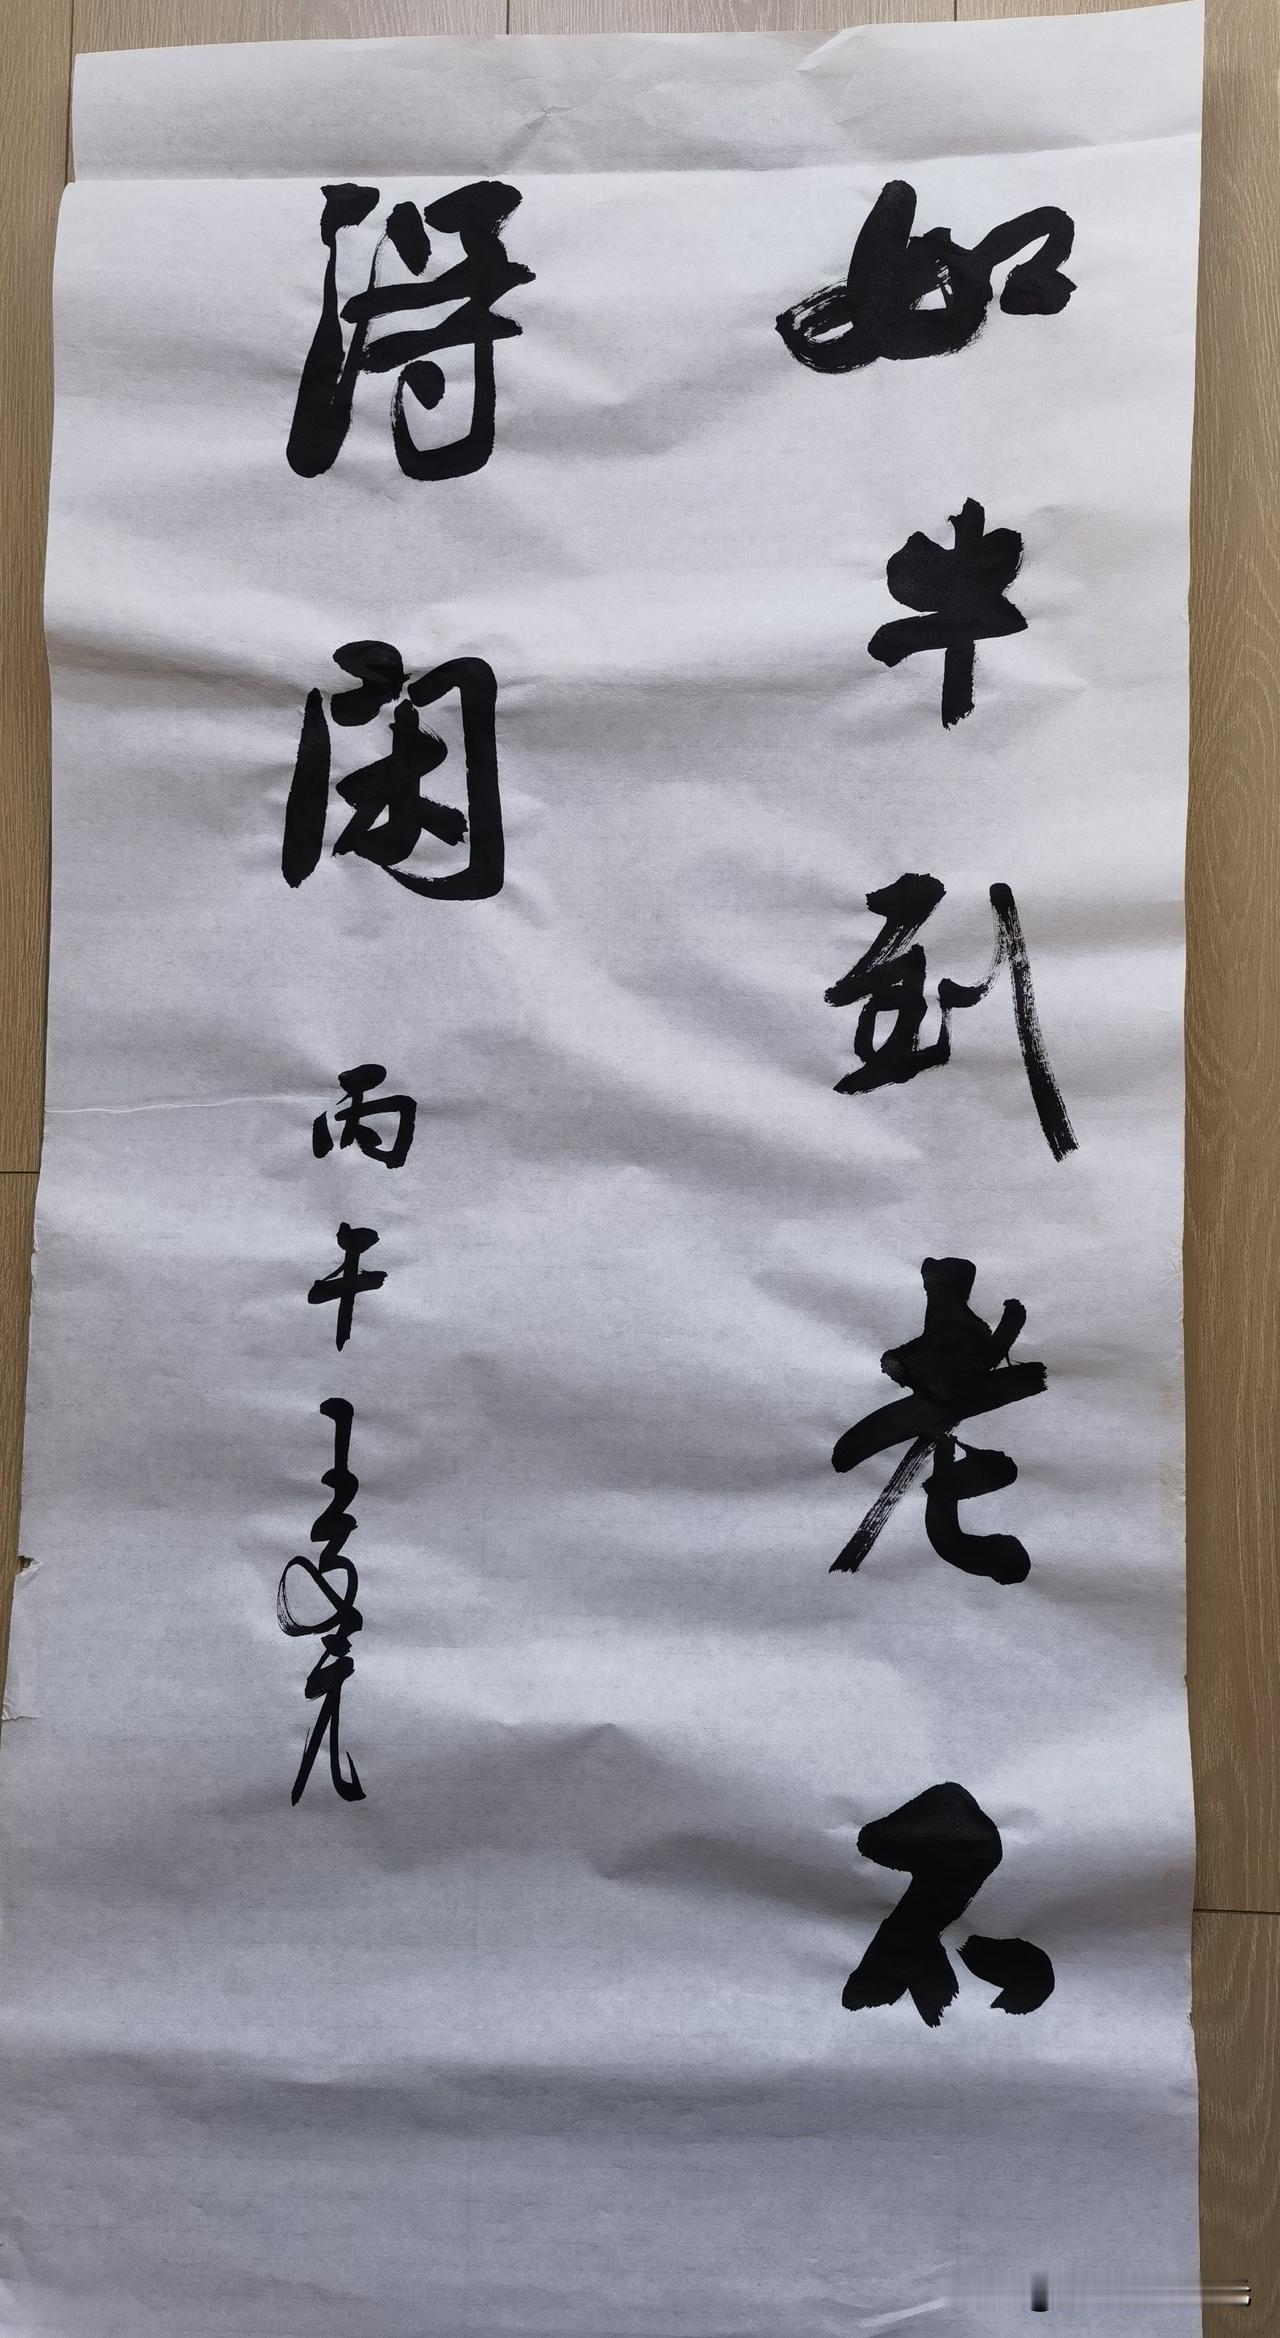 如牛到老不
得闲 丙午 王元